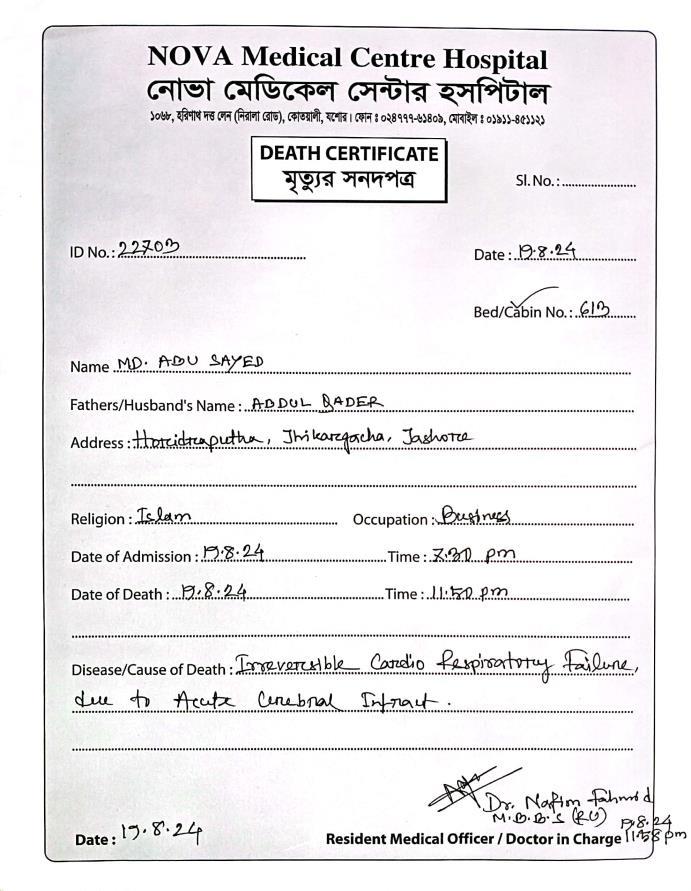 NOVA Medical Centre Hospital
নোভা মেডিকেল সেন্টার হসপিটাল
১০৬৮, হরিণাথ দত্ত লেন (নিরালা রোড), কোতয়ালী, যশোর। ফোন ঃ ০২৪৭৭৭-৬১৪০৯, মোবাইল ঃ ০১৯১১-৪৫১১২১
DEATH CERTIFICATE
মৃত্যুর সনদপত্র
Sl. No.:
ID No.: 22703
Date : 19.8.24
Bed/Cabin No.: 613
Name MD. ABU SAYED
Fathers/Husband's Name : ABDUL QADER
Address : Jhikargacha, Jashore
Religion : Islam Occupation : Business
Date of Admission : 19.8.24 Time : 7.30 pm
Date of Death : 19.8.24 Time : 11.50 pm
Disease/Cause of Death : Irreversible Cardio Respiratory Failure,
due to Acute Cerebral Infract.
Dr. Nafim Fahmid
M.B.B.S (RU)
19.8.24
Date : 19.8.24 Resident Medical Officer / Doctor in Charge 11:58 pm